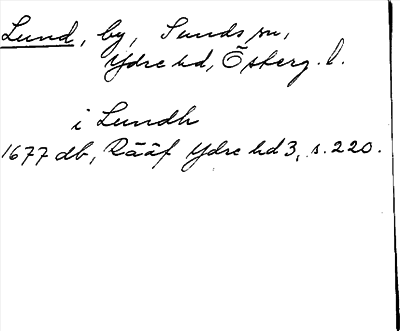 Lund, by, Sunds sn,
Ydre hd, Österg. l.
i Lundh
1677 db, Rääf Ydre hd 3, s. 220.